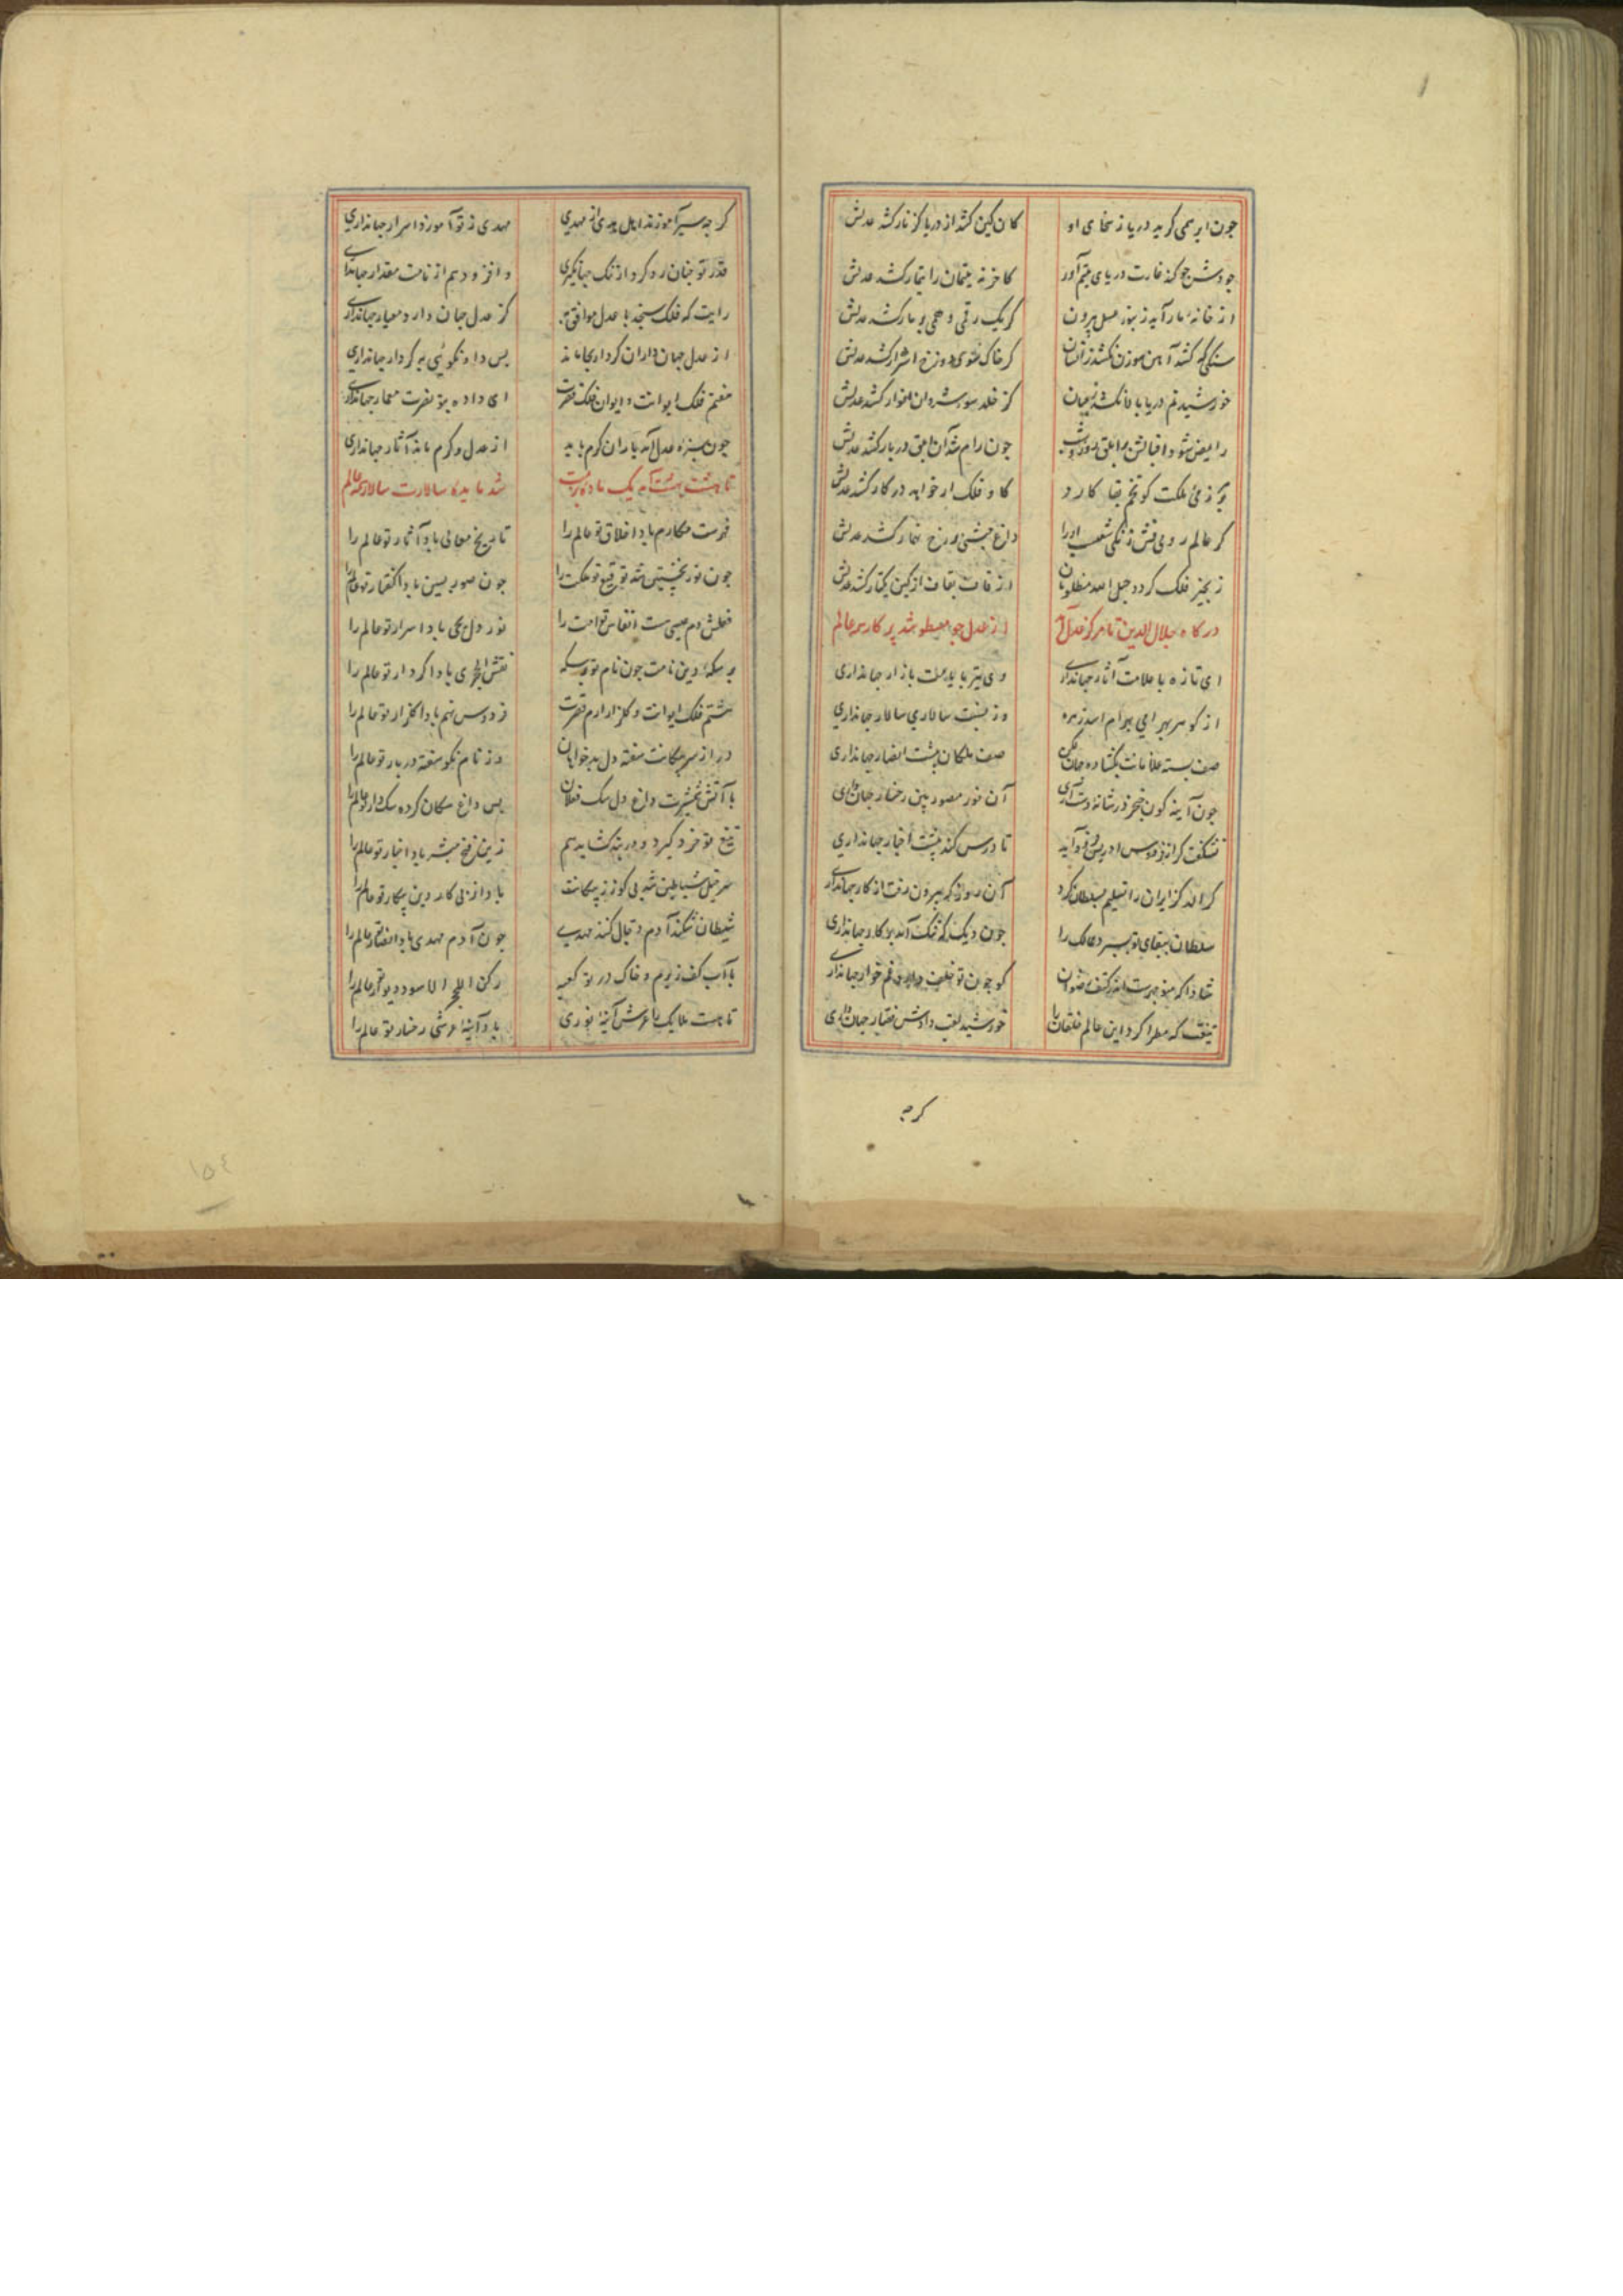 جون ابر همی کرید دریا ز سخای او کان کین کشد از دریا کز نار کشد عدلش
جودش جو کند غارت دریای یتیم آور کاخر نه یتیمان را تیمار کشد عدلش
از خانهٔ مار آید زنبور عسل بیرون کر یک رقمی بر مار کشد عدلش
سنکی که کشد آهن سوزن نکشد زانسان کر خاک سوی دوزخ اشرار کشد عدلش
خورشید نم دریا بالا نکشد کز خلد سوی کشد عدلش
رایض شود اقبالش بر ابلق روز و شب جون رام شد آن ابلق در بار کشد عدلش
بر زمی ملکت کو تخم بقا کارد کاو فلک ار خواهد در کار کشد عدلش
کر عالم رومی فش زنکی شغب او را داغ حبشی بر رخ کشد عدلش
زنجیر فلک کردد حبل الله مظلومان از قاف بقاف از کین یکتار کشد عدلش
درکاه جلال الدین تا مرکز عدل آمد از عدل جو مسطر شد پرکار همه عالم
ای تازه باعلامت آثار جهانداری وی تیز باد بازار جهانداری
از کوهر بهرامی بهرام اسد زهره وز نسبت سالاری سالار جهانداری
صف بسته غلامانت بکشاده جهان لیکن صف ملکان پشت انصار جهانداری
جون آینه کون خنجر در شانهٔ دست آری آن نور مصور بین رخسار جهانداری
نشکفت کر از فردوس ادریس فرود آید تا درس کند پیشت اخبار جهانداری
کر الدکز ایران را تسلیم بسلطان کرد آن روز که بیرون رفت از کار جهانداری
سلطان ببقای تو بسپرد ممالک را جون دید کت آمد کار جهانداری
شاداکه منوجهرست اندر کنف رضوان کو جون تو خلف دارد غم خوار جهانداری
تیغت که مطرا کرد این عالم خلقان را خورشید لقب دادش قصار جهانداری
کرجه
کرجه سیر آموزند اهل هدی از مهدی مهدی ز تو آموزد اسرار جهانداری
قدر تو جنان رد کرد از ننک جهانگیری وافزود هم از نامت مقدار جهانداری
رایت که فلک سنجد با عدل موافق به کز عدل جهان دارد معیار جهانداری
از عدل جهان داران کردار بجا ماند بس داد و نکویی به کردار جهانداری
هفتم فلک ایوانت و ایوان فلک قصرت ای داده بتو نصرت معمار جهانداری
جون سبزهٔ عدل آمد باران کرم باید از عدل و کرم ماند آثار جهانداری
تا هشت بهشت آمد یک مائده برت شد مایده سالارت سالار همه عالم
فهرست مکارم باد اخلاق تو عالم را تاریخ معالی باد آثار تو عالم را
جون نور نخستین شد توقیع تو ملکت را جون صور پسین باد گفتار تو عالم را
فعلش دم عیسی است انفاس تو امت را نور دل یحیی باد اسرار تو عالم را
بر سکهٔ دین نامت جون نام تو بر سکه نقش الحجری باد کردار تو عالم را
هشتم فلک ایوانت و گلزار ارم قصرت فردوس نهم باد گلزار تو عالم را
در از سر پیکانت سفته دل بدخواهان وز نام نکو سفته دربار تو عالم را
با آتش شمشیرت داغ دل سک فعلان بس داغ سکان کرده سک دار تو عالم را
تیغ تو خزر گیرد و دربند کشاید هم زین فتح مبشر باد اخبار تو عالم را
سرخیل شیاطین شد پی کور ز پیکانت باد از پی کار دین پیکار تو عالم را
شیطان شکند آدم دجال کشد مهدی جون آدم و مهدی باد انصار تو عالم را
با آب کفت زمزم و خاک در تو کعبه رکن الحجر الاسود دیوار تو عالم را
تا هست ملایک را عرش آینهٔ نوری باد آینهٔ عرشی رخسار تو عالم را
۱۵٤